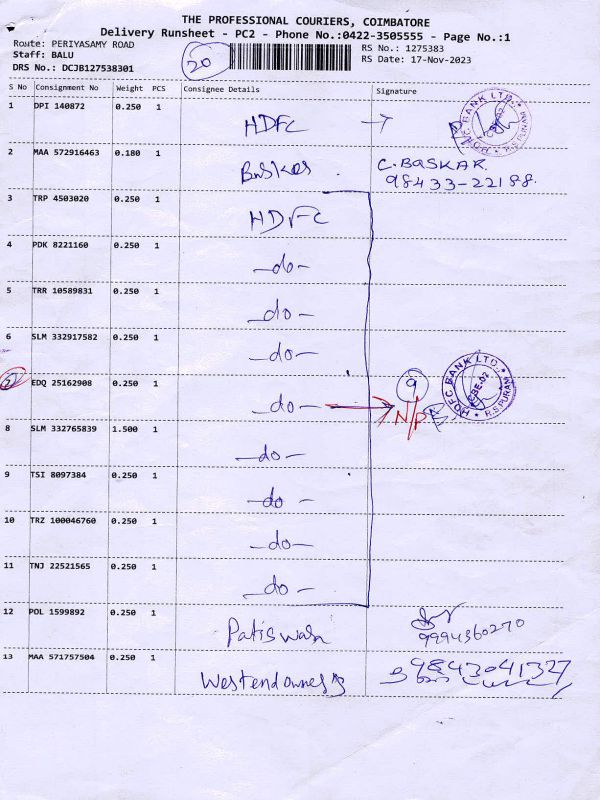 THE PROFESSIONAL COURIERS, COIMBATORE
Delivery Runsheet - PC2 - Phone No.:0422-3505555 - Page No.:1
Route: PERIYASAMY ROAD
Staff: BALU
DRS No.: DCJB127538301
20
RS No.: 1275383
RS Date: 17-Nov-2023
S No Consignment No Weight PCS Consignee Details Signature
1 DPI 140872 0.250 1 HDFC
HDFC BANK LTD. R.S PURAM
2 MAA 572916463 0.180 1 Baskar C. BASKAR
98433-22188
3 TRP 4503020 0.250 1 HDFC
4 PDK 8221160 0.250 1 -do-
5 TRR 10589831 0.250 1 -do-
6 SLM 332917582 0.250 1 -do-
7 EDQ 25162908 0.250 1 -do- 9
N/P
HDFC BANK LTD. CBE-02 R.S PURAM
8 SLM 332765839 1.500 1 -do-
9 TSI 8097384 0.250 1 -do-
10 TRZ 100046760 0.250 1 -do-
11 TNJ 22521565 0.250 1 -do-
12 POL 1599892 0.250 1
9994360270
13 MAA 571757504 0.250 1 Westend owners
9843041327